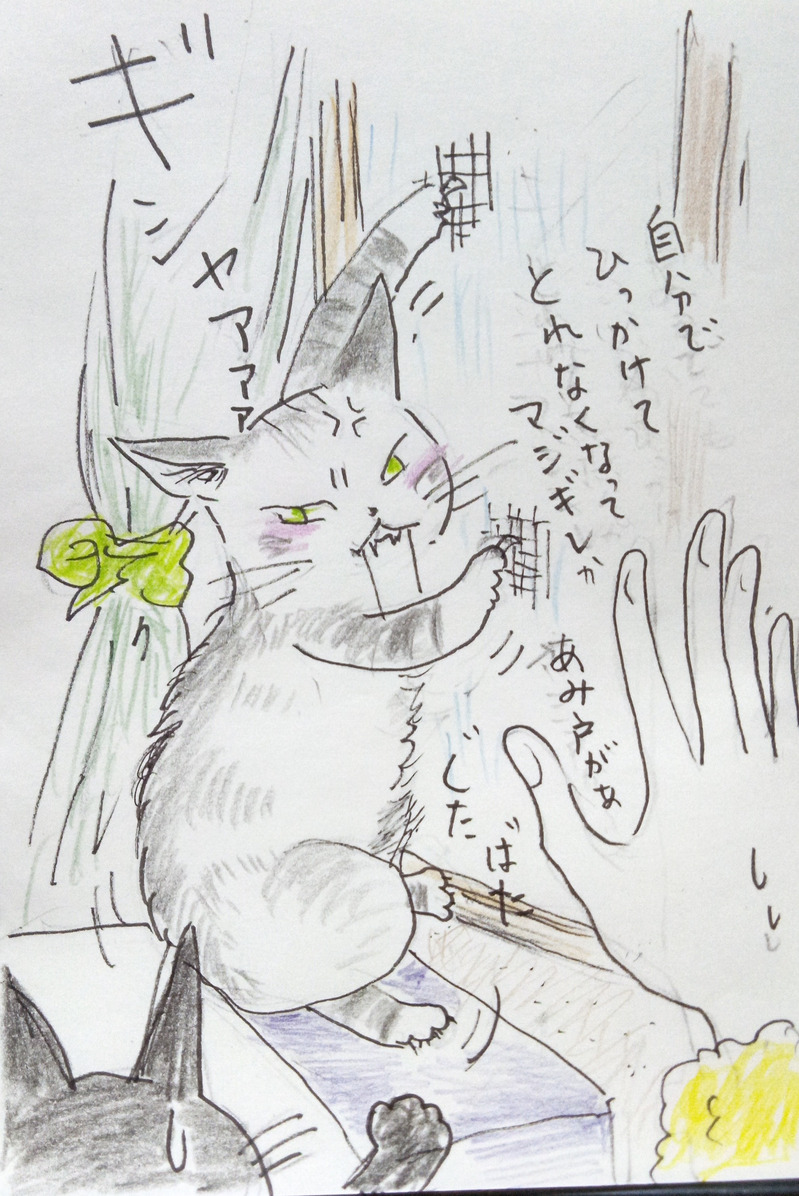 ギシャアアァァ
自分で
ひっかけて
とれなくなって
マジギレか
あみ戸がぁ
じた
ばた